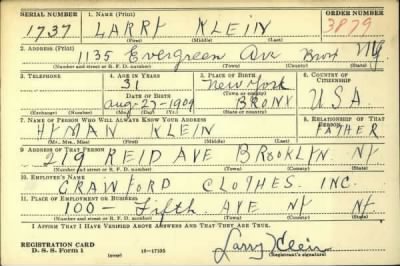 SERIAL NUMBER 1. NAME (Print) ORDER NUMBER
1737 LARRY KLEIN 3879
(First) (Middle) (Last)
2. ADDRESS (Print)
1135 Evergreen Ave Bronx NY
(Number and street or R. F. D. number) (Town) (County) (State)
3. TELEPHONE 4. AGE IN YEARS 5. PLACE OF BIRTH 6. COUNTRY OF CITIZENSHIP
31 New York
DATE OF BIRTH (Town or county)
Aug-27-1909 BRONX USA
(Exchange) (Number) (Mo.) (Day) (Yr.) (State or country)
7. NAME OF PERSON WHO WILL ALWAYS KNOW YOUR ADDRESS 8. RELATIONSHIP OF THAT PERSON
HYMAN KLEIN FATHER
(Mr., Mrs., Miss) (First) (Middle) (Last)
9. ADDRESS OF THAT PERSON
219 REID AVE BROOKLYN NY
(Number and street or R. F. D. number) (Town) (County) (State)
10. EMPLOYER'S NAME
CRAWFORD CLOTHES. INC.
11. PLACE OF EMPLOYMENT OR BUSINESS
100 - Fifth AVE NY NY
(Number and street or R. F. D. number) (Town) (County) (State)
I AFFIRM THAT I HAVE VERIFIED ABOVE ANSWERS AND THAT THEY ARE TRUE.
REGISTRATION CARD Larry Klein
D. S. S. Form 1 (over) 16-17105 (Registrant's signature)